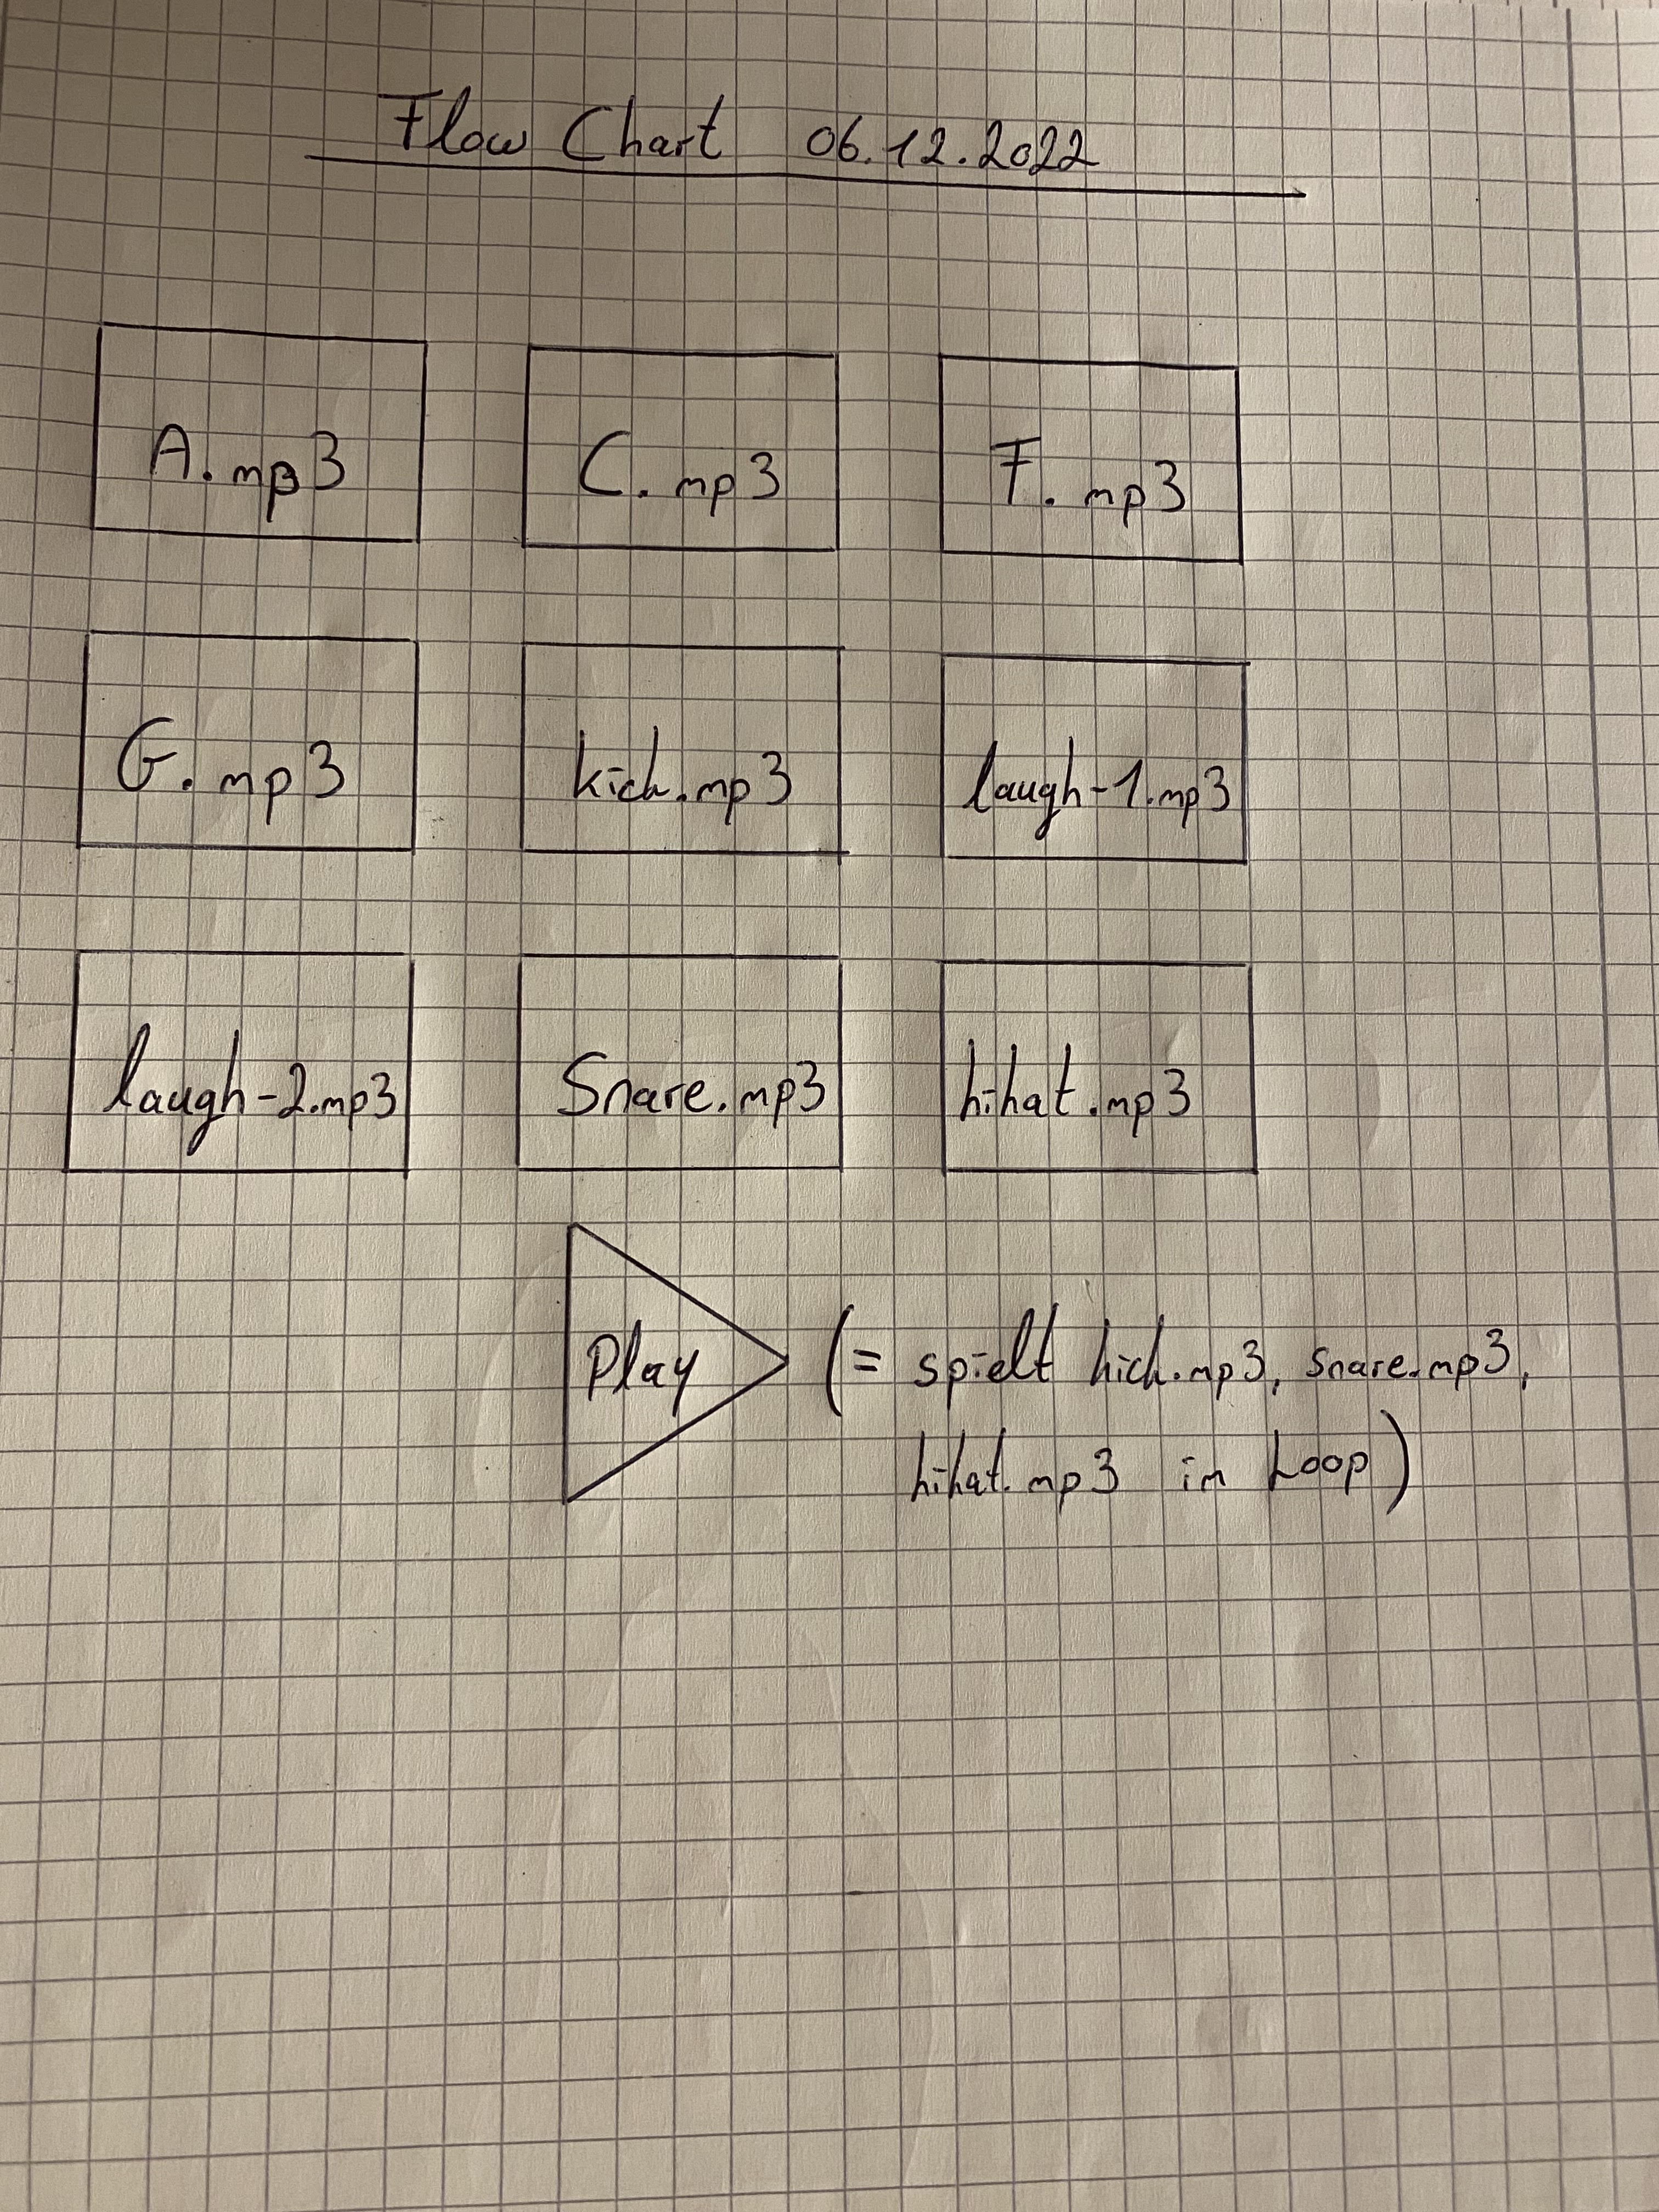 Flow Chart 06.12.2022
A.mp3 C.mp3 F.mp3
G.mp3 kick.mp3 laugh-1.mp3
laugh-2.mp3 Snare.mp3 hihat.mp3
Play (= spielt kick.mp3, snare.mp3,
hihat.mp3 in Loop)